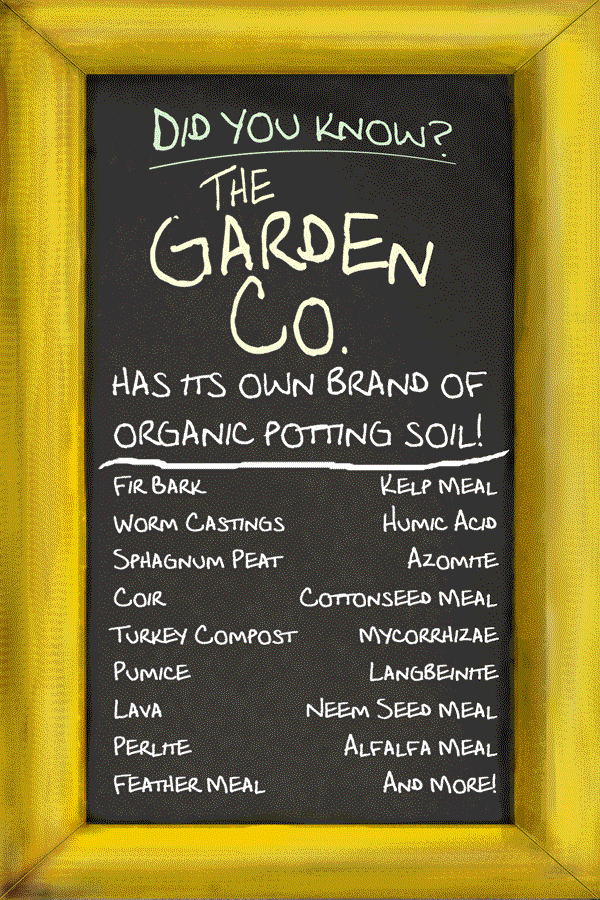 DID YOU KNOW?
THE
GARDEN
CO.
HAS ITS OWN BRAND OF
ORGANIC POTTING SOIL!
FIR BARK KELP MEAL
WORM CASTINGS HUMIC ACID
SPHAGNUM PEAT AZOMITE
COIR COTTONSEED MEAL
TURKEY COMPOST MYCORRHIZAE
PUMICE LANGBEINITE
LAVA NEEM SEED MEAL
PERLITE ALFALFA MEAL
FEATHER MEAL AND MORE!